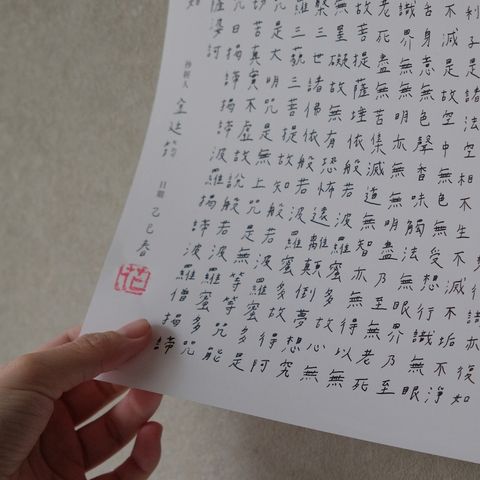 行識亦復如
利子是諸法空相不生不滅不垢不淨
不減是故空中無色無受想行識無眼
舌身意無色聲香味觸法無眼界乃至
識界無無明亦無無明盡乃至無老死
老死盡無苦集滅道無智亦無得以無
故菩提薩埵依般若波羅蜜多故心無
無罣礙故無有恐怖遠離顛倒夢想究
槃三世諸佛依般若波羅蜜多故得阿
羅三藐三菩提故知般若波羅蜜多是
咒是大明咒是無上咒是無等等咒能
切苦真實不虛故說般若波羅蜜多咒
咒曰揭諦揭諦波羅揭諦波羅僧揭諦
薩婆訶
抄經人 金廷筠
日期 乙巳春